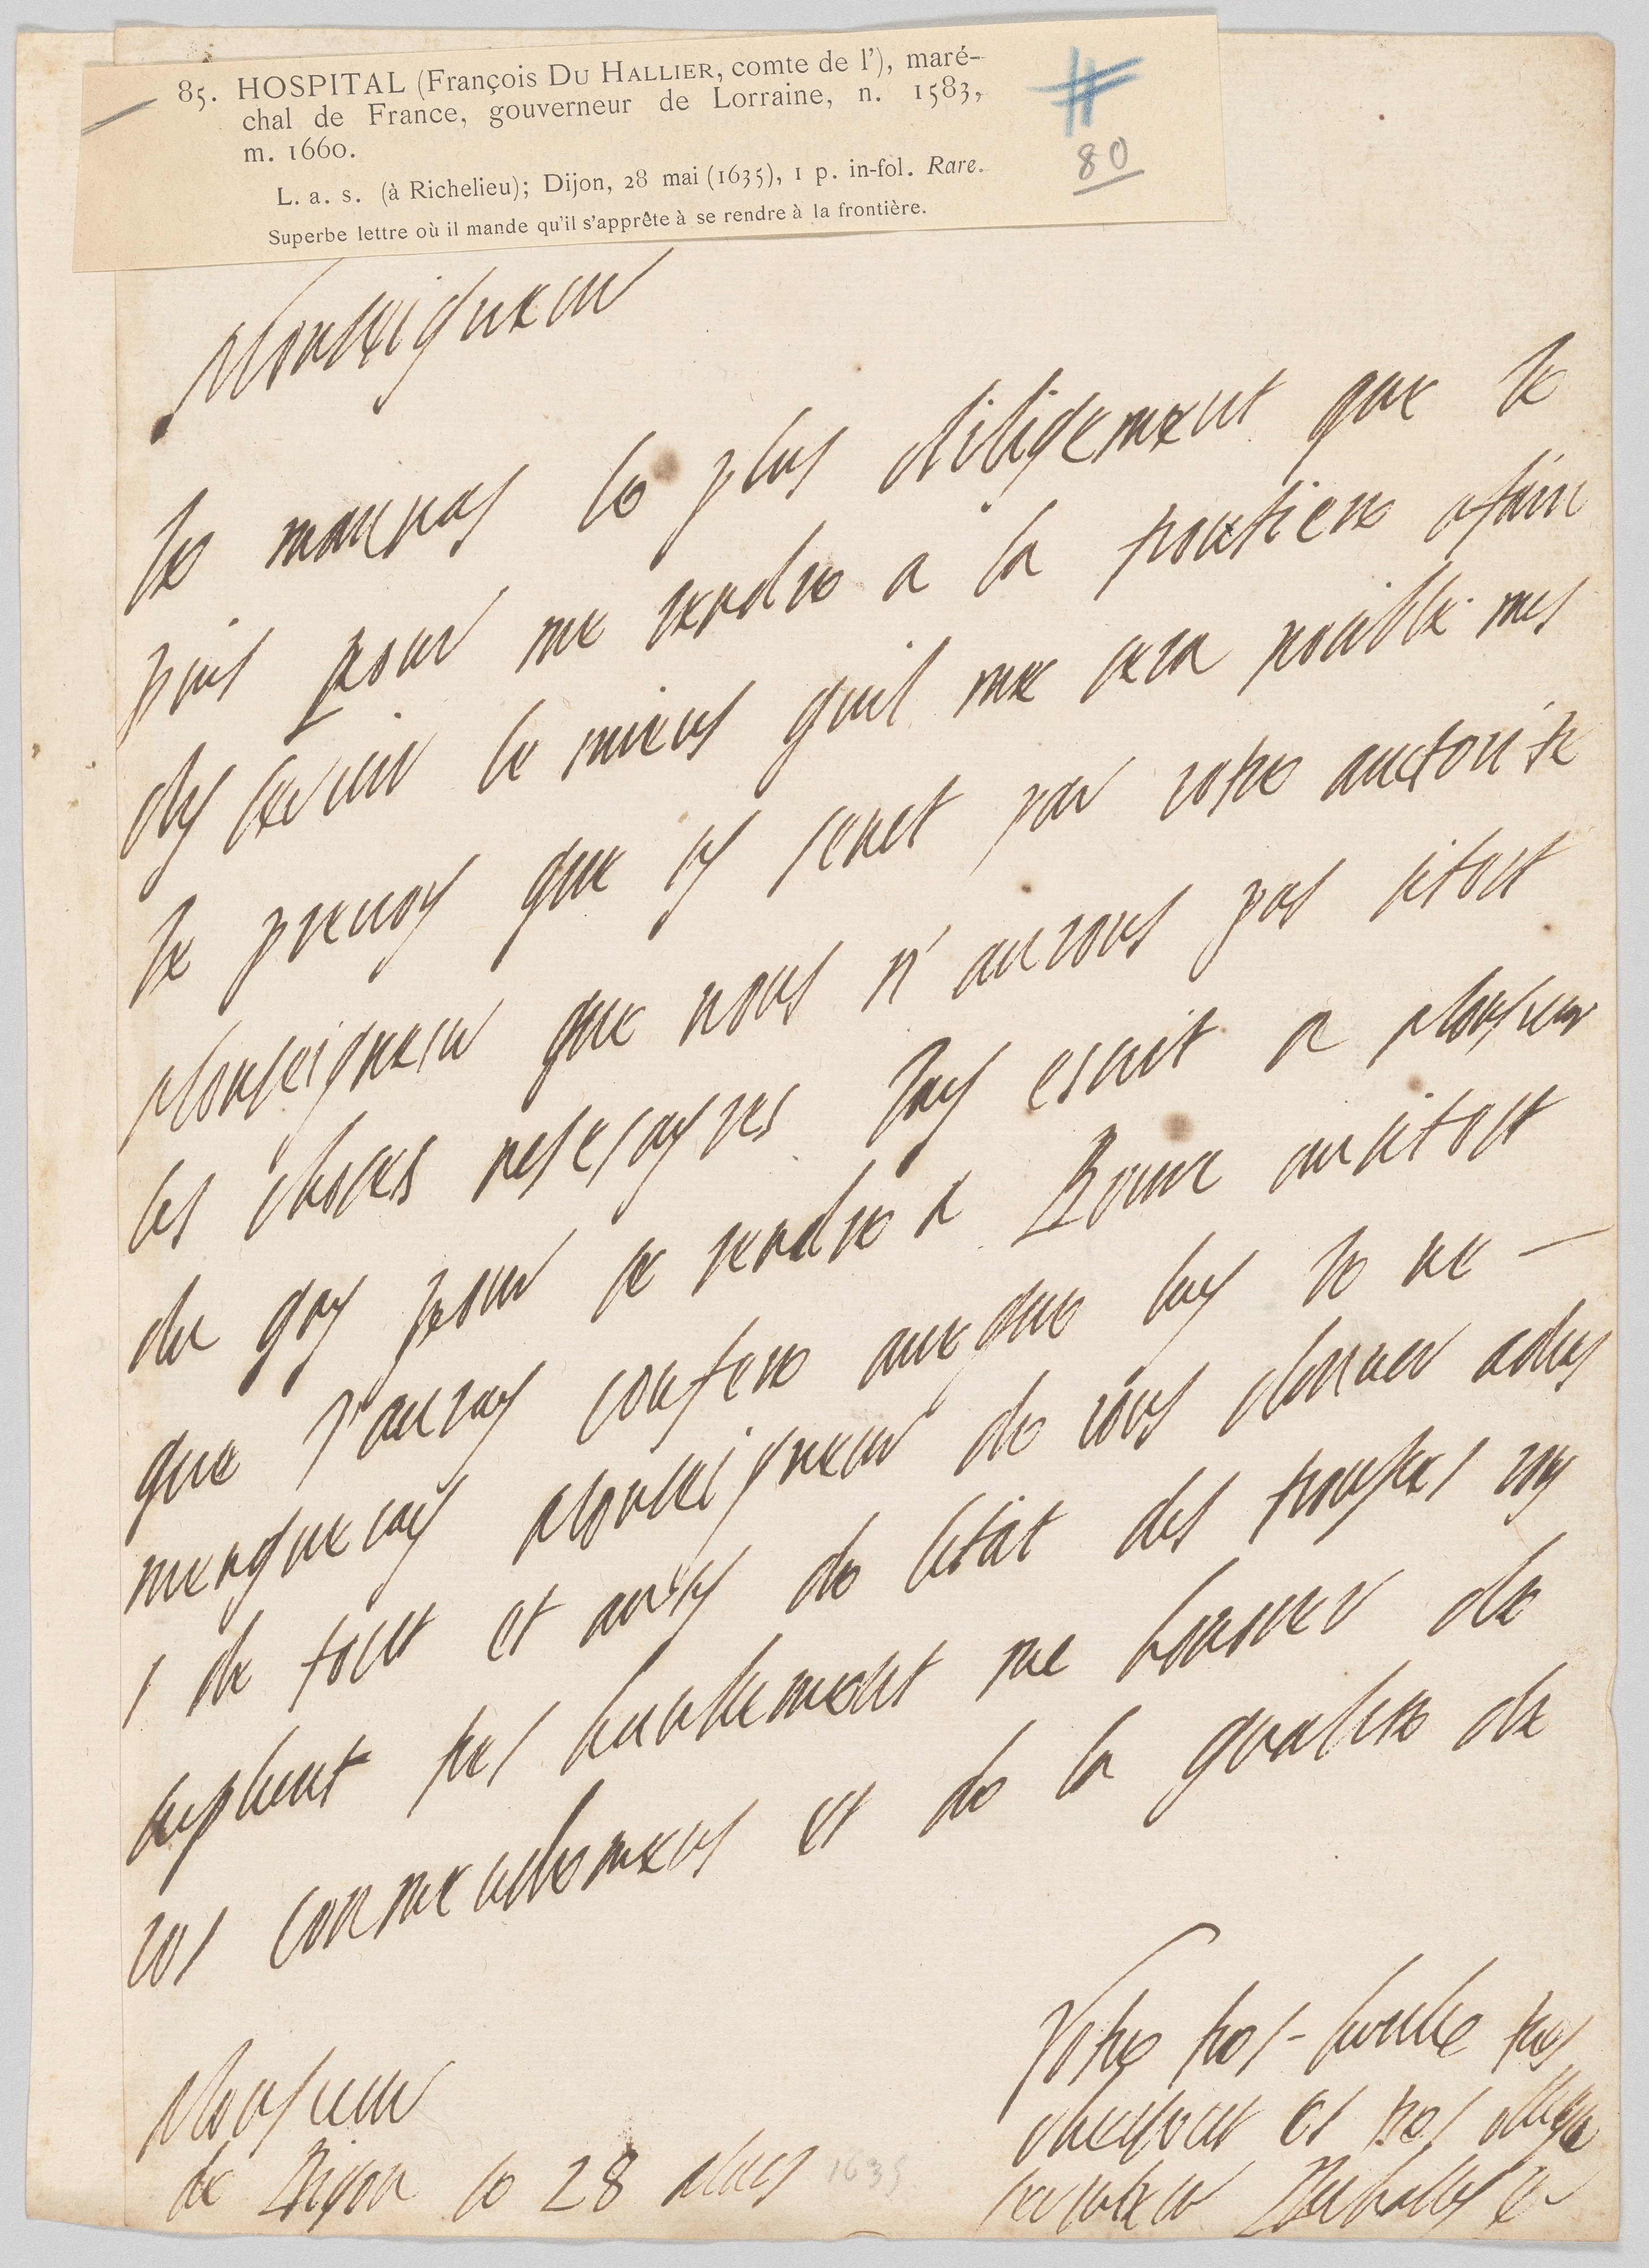 85. HOSPITAL (François Du Hallier, comte de l'), maré-
chal de France, gouverneur de Lorraine, n. 1583,
m. 1660.
L. a. s. (à Richelieu); Dijon, 28 mai (1635), 1 p. in-fol. Rare.
Superbe lettre où il mande qu'il s'apprête à se rendre à la frontière.
#
80
Monseigneur
Je le plus diligemment que Je
puis pour me rendre a la frontiere afain
dy servir le mieus quil me sera posible mes
Je prevoy que sy senet par votre auctorite
Monseigneur que nous n'aurons pas sitost
les choses nesesayres Jay escrit a Monsieur
du pour se rendre a aussitost
que j'auray confere avecque luy Je ne
menqueray Monseigneur de vous donner advis
de tout et aussy de lestat des troupes vous
supliant tres humblement me honorer de
vos commendemens et de la qualite de
Votre tres-humble tres
obeissant et tres oblige
serviteur Duhallier
Monsieur
de Dijon le 28 may 1635